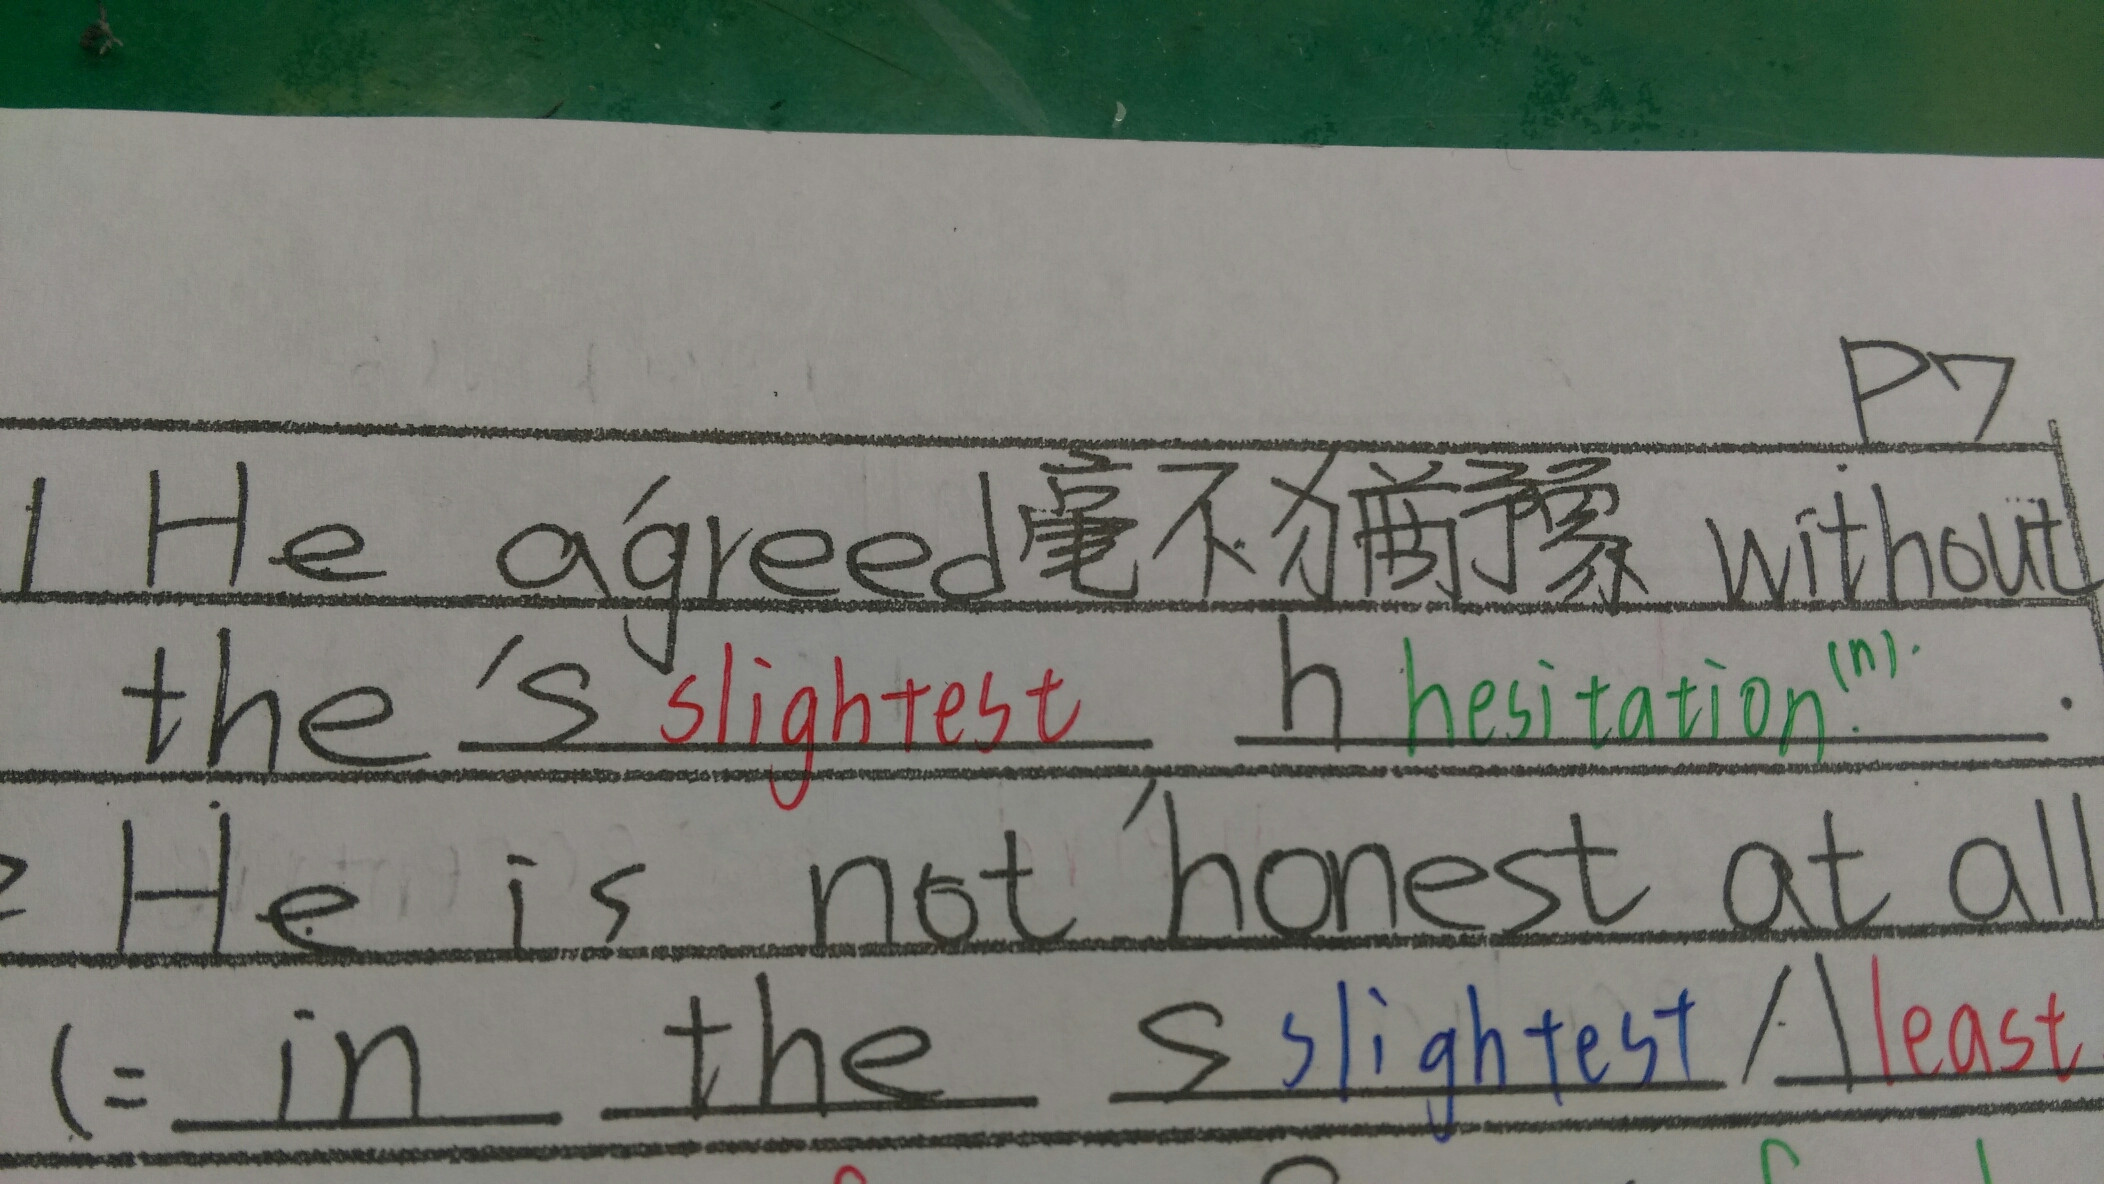 P7
1 He agreed毫不猶豫 without
the s slightest h hesitation(n).
2 He is not honest at all
(= in the s slightest / l least